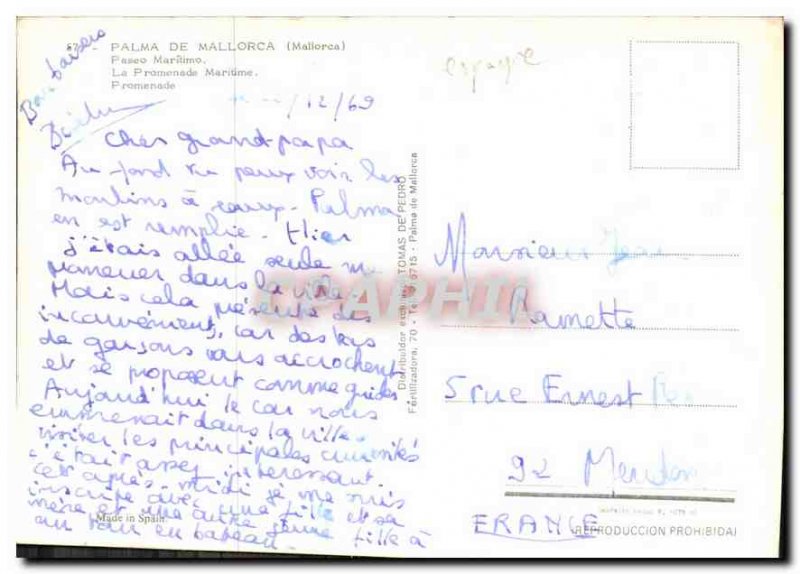 67 PALMA DE MALLORCA (Mallorca)
Paseo Marítimo.
La Promenade Maritime.
Promenade
Bons baisers
/12/69
Cher grand papa
Au fond tu peux voir les
moulins à eaux. Palma
en est remplie. Hier
j'étais allée seule me
promener dans la ville
Mais cela présente des
inconvénients, car des tas
de garçons vous accrochent
et se proposent comme guides
Aujourd'hui le car nous
emmenait dans la ville
visiter les principales curiosités
c'était assez intéressant.
cet après-midi je me suis
inscrite avec une fille et sa
mère et une autre jeune fille à
un tour en bateau.
Made in Spain
Distribuidor TOMAS DE PEDRO
Fertilizadora, 70 - Palma de Mallorca
CPAPHIL
espagne
Monsieur Jean
Ramette
5 rue Ernest
92 Meudon
FRANCE
(REPRODUCCION PROHIBIDA)